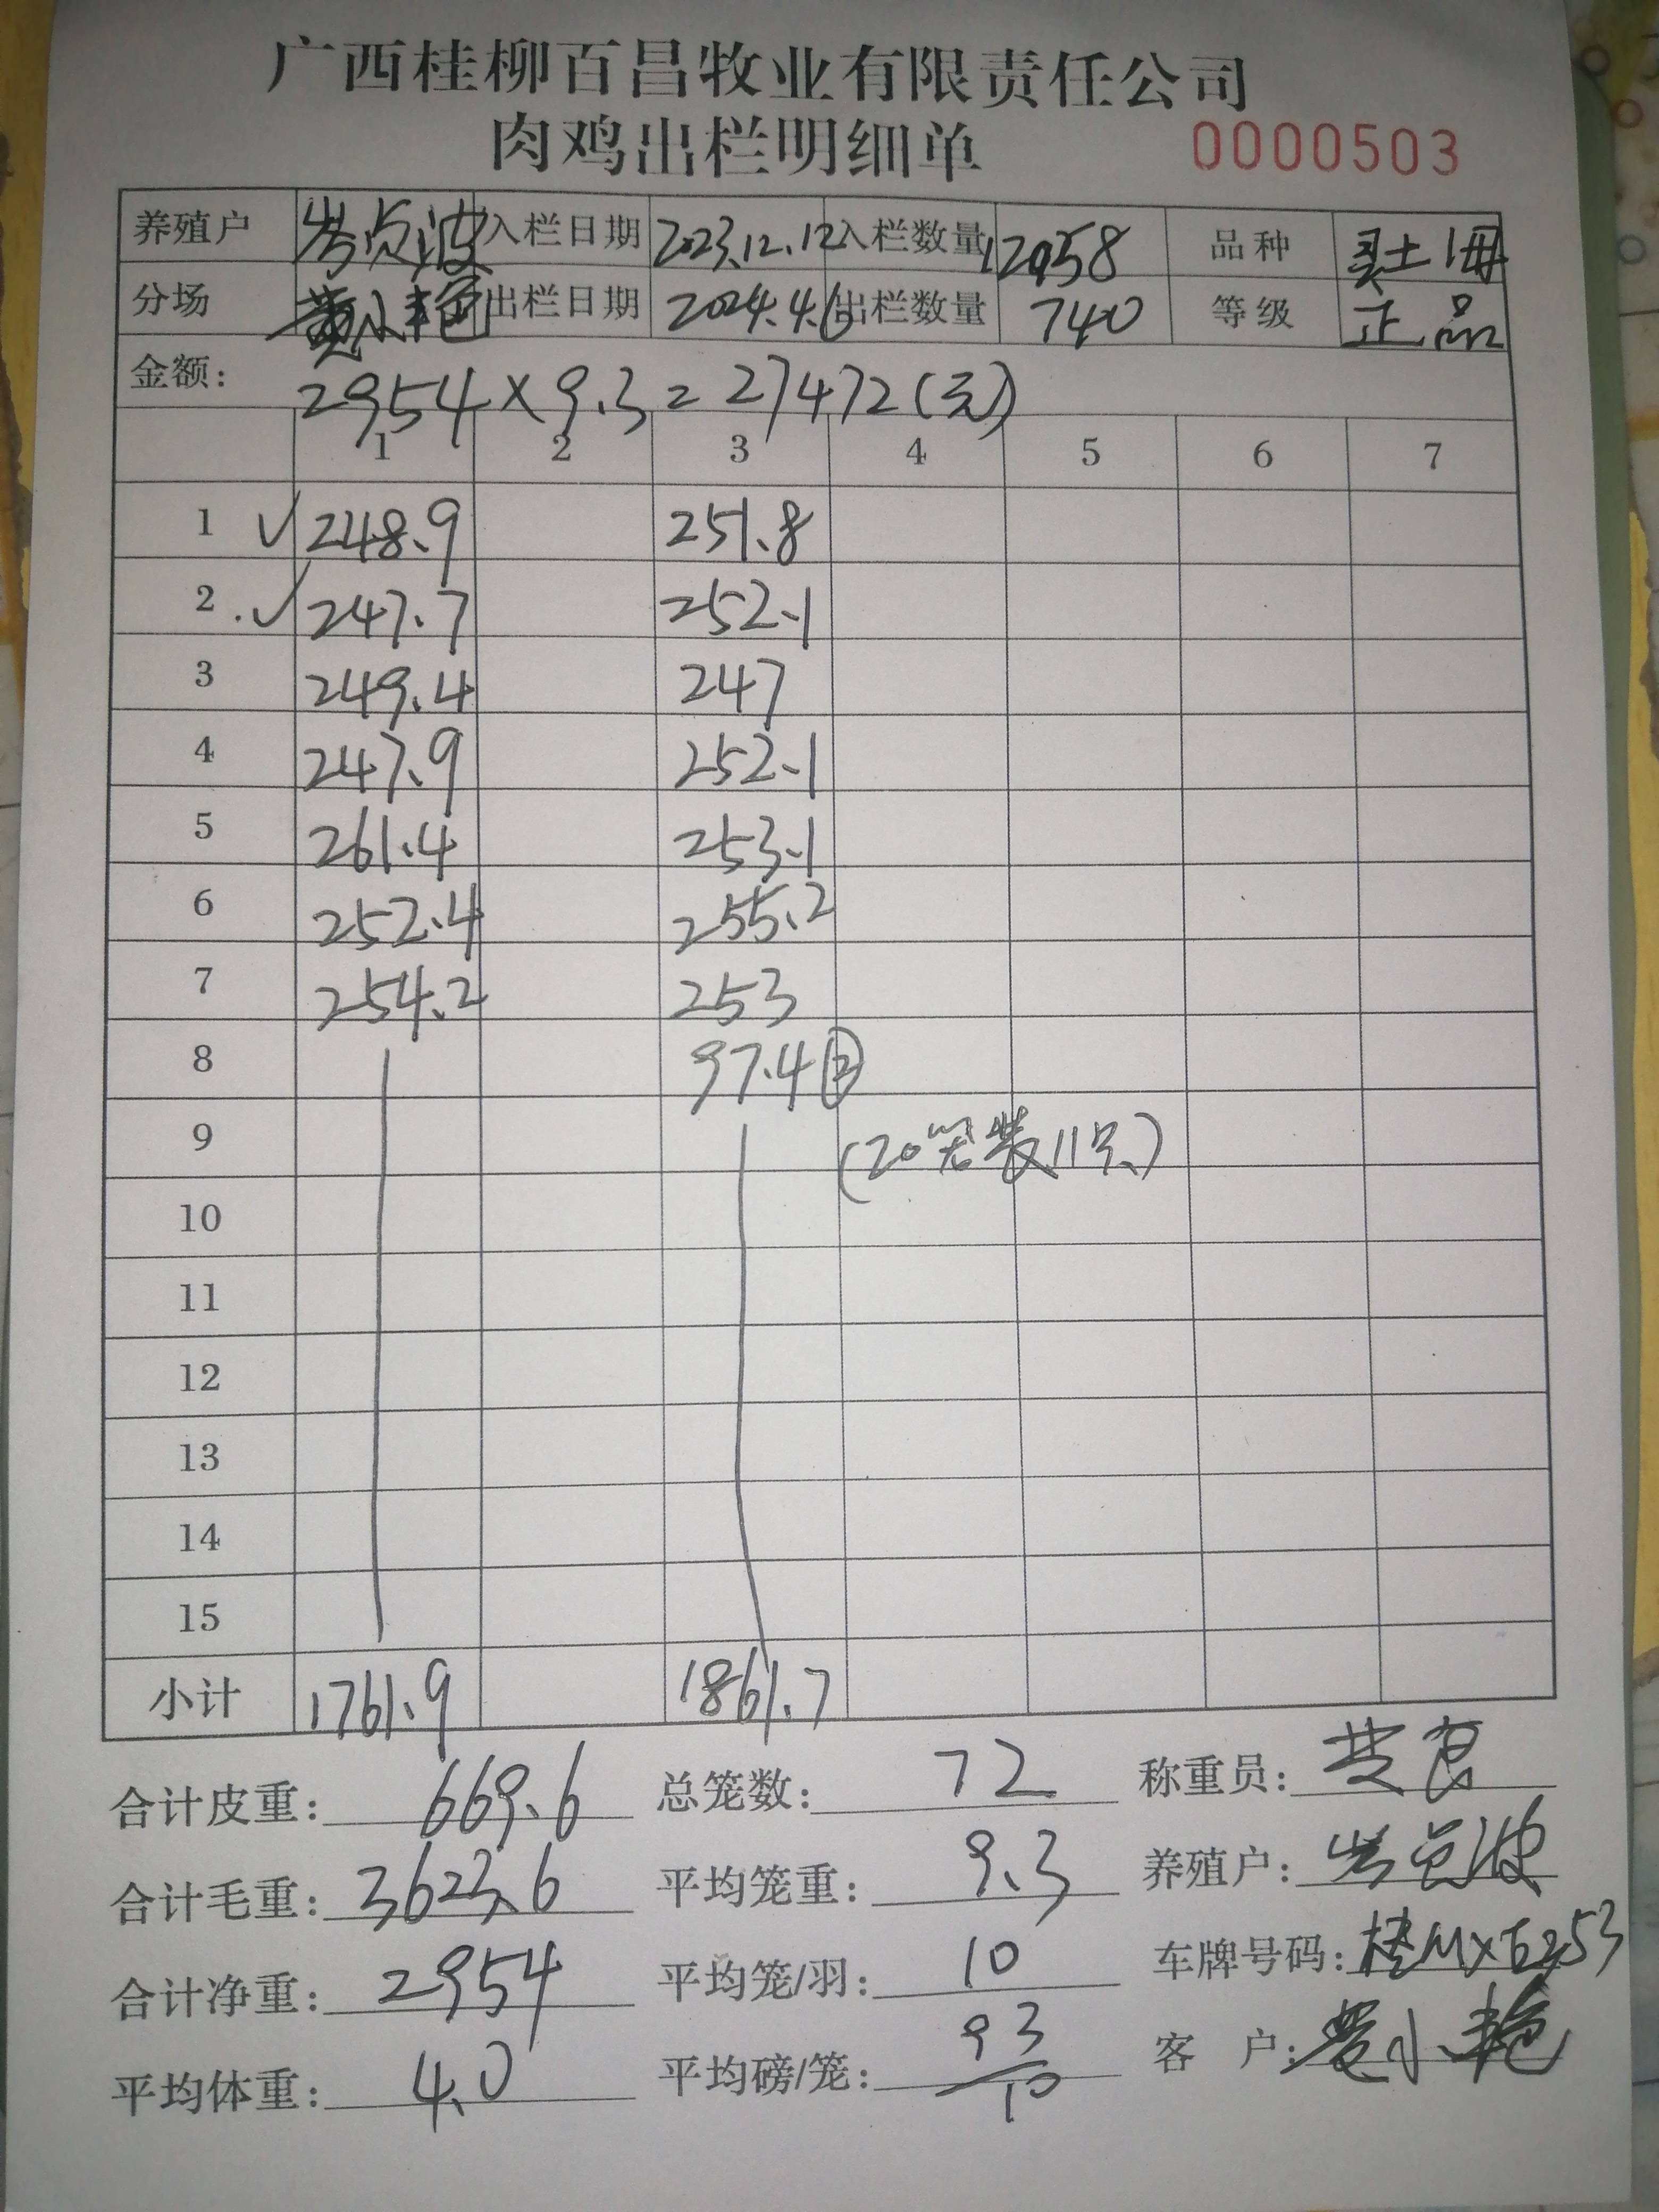 广西桂柳百昌牧业有限责任公司
肉鸡出栏明细单 0000503
养殖户 入栏日期 2023.12.12 入栏数量 12058 品种 土
分场 黄小艳 出栏日期 2024.4.6 出栏数量 740 等级 正品
金额: 2954×9.3=27472(元)
1 2 3 4 5 6 7
1 ✓ 248.9 251.8
2 .✓ 247.7 252.1
3 249.4 247
4 247.9 252.1
5 261.4 253.1
6 252.4 255.2
7 254.2 253
8 97.4 ②
9 (20笼装11只)
10
11
12
13
14
15
小计 1761.9 1861.7
合计皮重: 669.6 总笼数: 72 称重员:
合计毛重: 3623.6 平均笼重: 9.3 养殖户:
合计净重: 2954 平均笼/羽: 10 车牌号码:
平均体重: 4.0 平均磅/笼: 93/10 客 户: 黄小艳